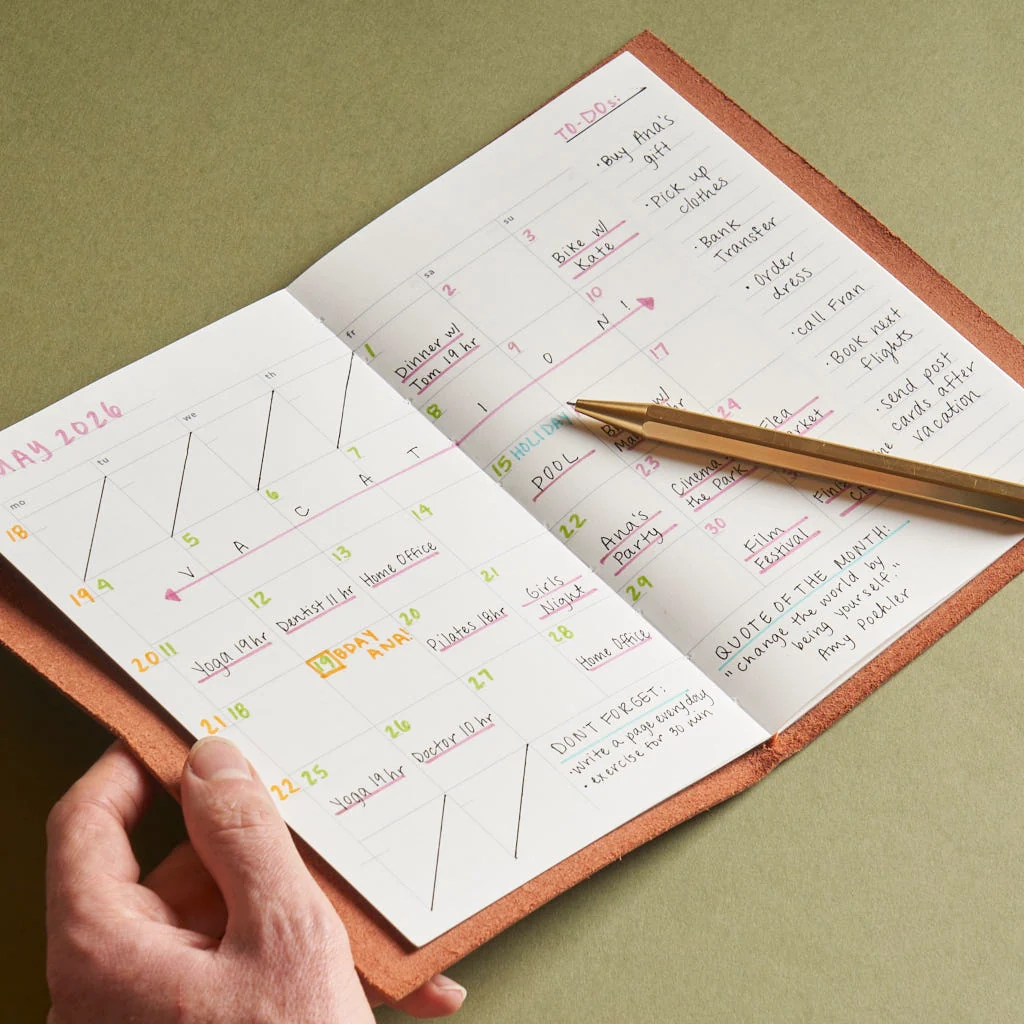 MAY 2026
mo tu we th fr sa su
18 1 2 3
Dinner w/
Tom 19 hr
Bike w/
Kate
19 4 5 6 7 8 9 10
V A C A T I O N !
20 11 12 13 14 15 HOLIDAY 17
Yoga 19hr
Dentist 11 hr
Home Office
POOL
w/
21 18 19 BDAY
ANA!
20 21 22 23 24
Pilates 18hr
Girls
Night
Ana's
Party
Cinema
the Park
22 25 26 27 28 29 30
Yoga 19hr
Doctor 10 hr
Home Office
Film
Festival
DONT FORGET:
• write a page everyday
• exercise for 30 min
TO-DOs:
• Buy Ana's
gift
• Pick up
clothes
• Bank
Transfer
• Order
dress
• call Fran
• Book next
flights
• send post
cards after
vacation
QUOTE OF THE MONTH:
"Change the world by
being yourself."
Amy Poehler